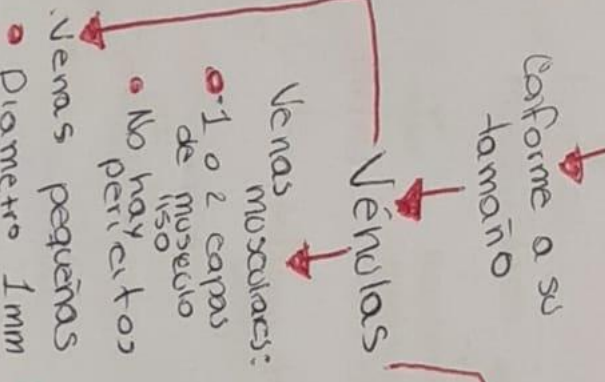 Conforme a su
tamaño
Vénulas
Venas
musculares:
1 o 2 capas
de musculo
liso
No hay
pericitos
Venas pequeñas
Diametro 1mm